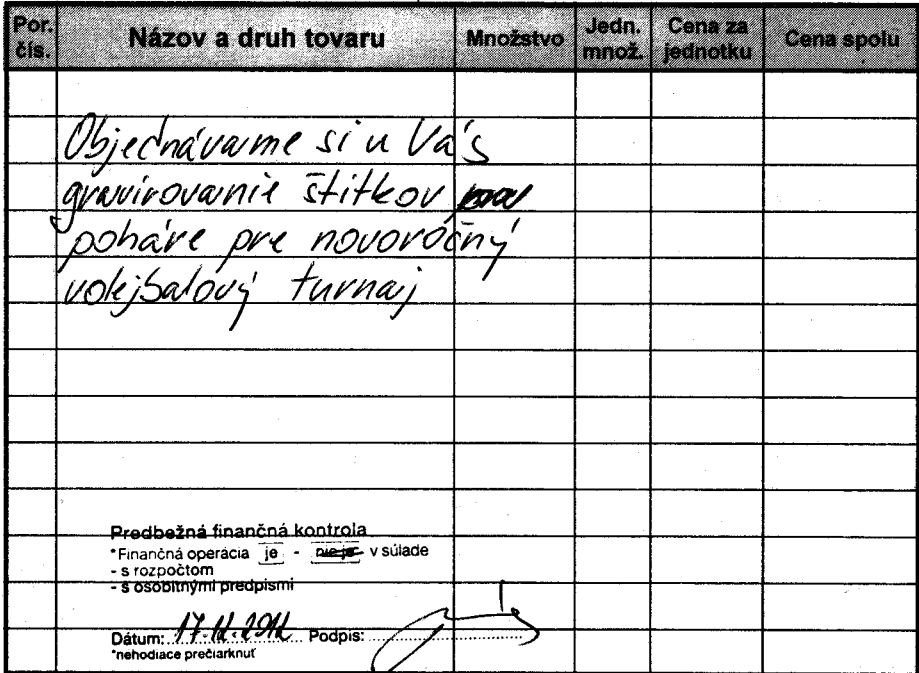 Por. čís. Názov a druh tovaru Množstvo Jedn. množ. Cena za jednotku Cena spolu
Objednávame si u Vás
gravirovanie štítkov na
poháre pre novoročný
volejbalový turnaj
Predbežná finančná kontrola
*Finančná operácia je - nie je v súlade
- s rozpočtom
- s osobitnými predpismi
Dátum: 17.12.2012 Podpis:
*nehodiace prečiarknuť